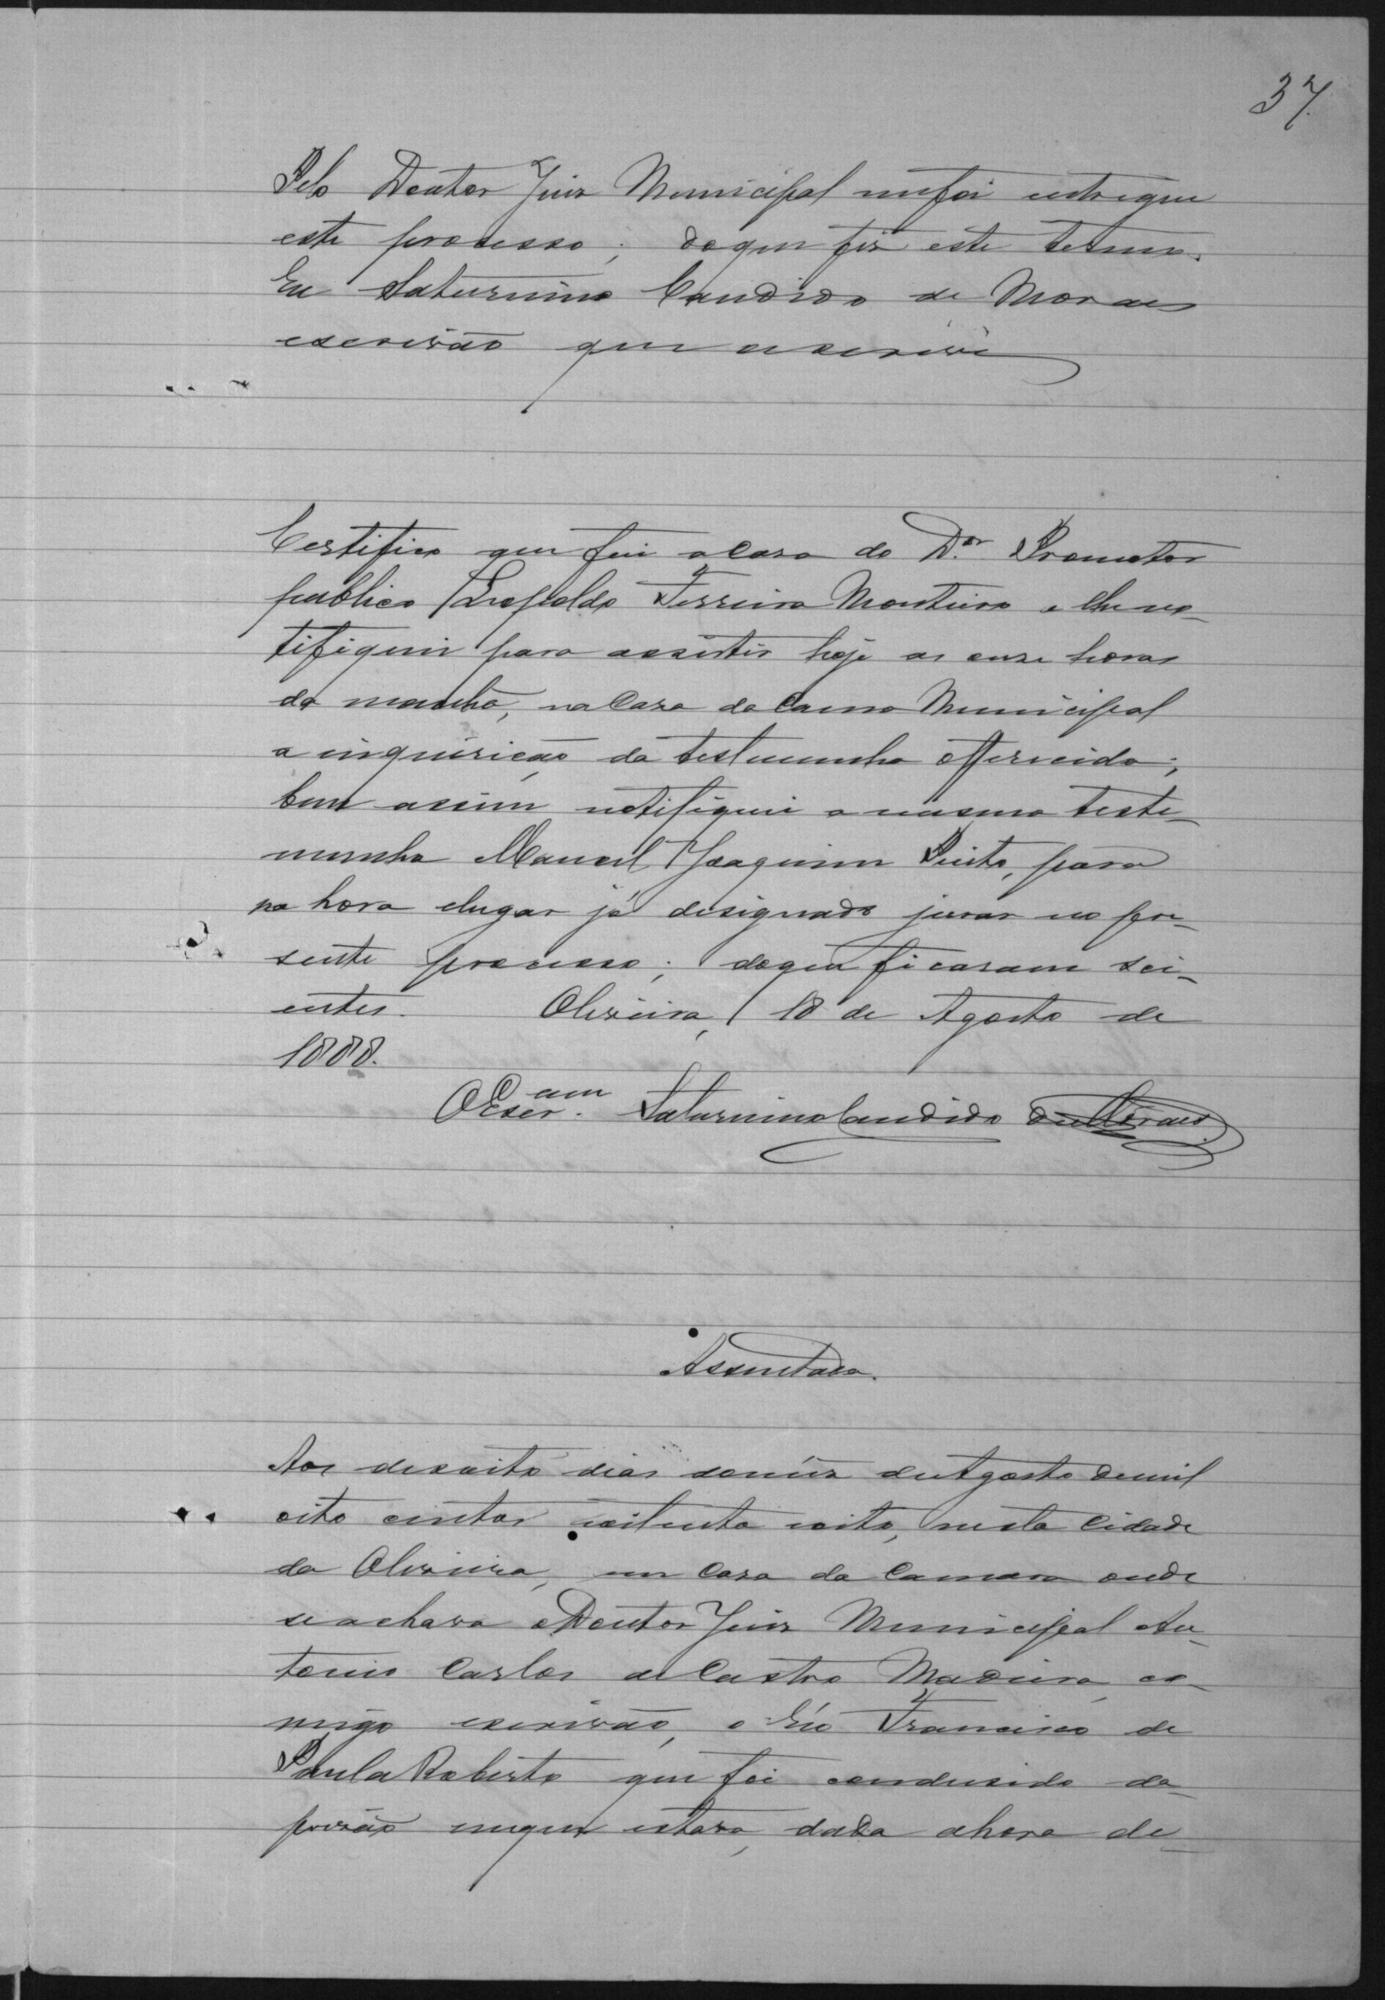 37.
Pelo Doutor Juiz Municipal me foi entregue
este processo; do que fiz este termo.
Eu Saturnino Candido de Moraes
escrivão que escrevi
Certifico que fui a Casa do D.or Promotor
publico Leopoldo Ferreira Monteiro e lhe no-
tifiquei para assistir hoje as onze horas
da manhã, na Casa da Camra Municipal
a inquirição da testemunha offerecida;
bem assim notifiquei a mesma teste-
munha Manoel Joaquim Pinto, para
na hora e lugar já designado jurar no pre-
sente processo; do que ficaram sci-
entes. Oliveira, 18 de Agosto de
1888.
O Escr.am Saturnino Candido de Moraes.
Assentada.
Aos dezoito dias do mez de Agosto de mil
oito centos e oitenta e oito, nesta Cidade
da Oliveira, em Casa da Camara onde
se achava o Doutor Juiz Municipal An-
tonio Carlos de Castro Madeira, co-
migo escrivão, o Réo Francisco de
Paula Roberto que foi condusido da
prisão em que estava, dada a hora de-